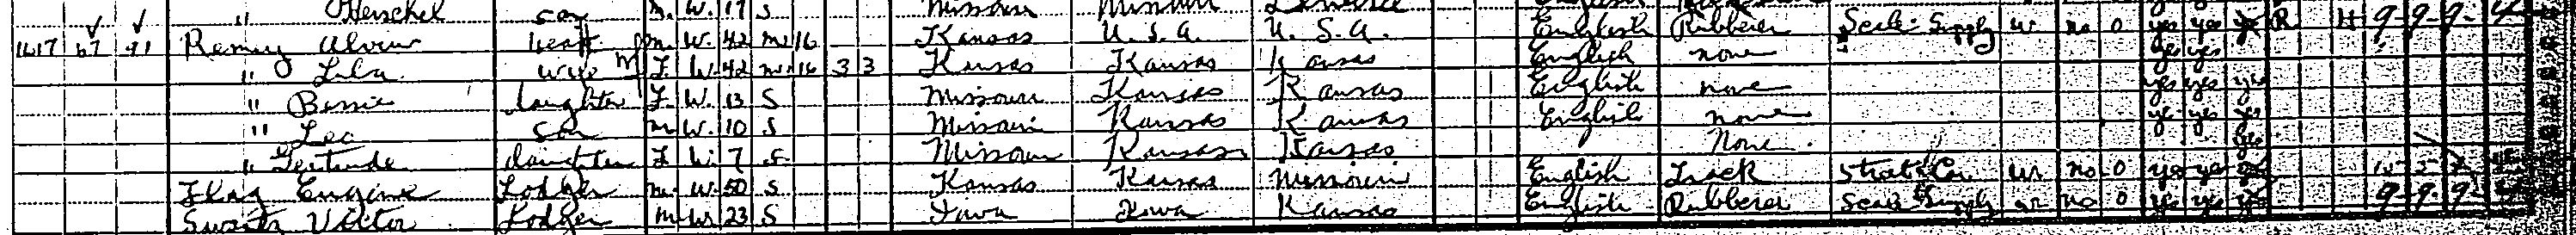 " Herschel son M. W. 17 S Missouri Missouri English
1617 67 91 Remey Alvin head M. W. 42 M 16 Kansas U.S.A. U.S.A. English Rubberer Scale Supply W no 0 yes yes yes R H 9-9-9-4
" Lila wife F. W. 42 M 16 3 3 Kansas Kansas Kansas English none yes yes
" Bessie daughter F. W. 13 S Missouri Kansas Kansas English none yes yes yes
" Leo son M W. 10 S Missouri Kansas Kansas English none yes yes yes
" Gertrude daughter F W. 7 S. Missouri Kansas Kansas None. yes
Flag Eugene Lodger M. W. 50 S Kansas Kansas Missouri English Track Street Car W no 0 yes yes yes
Swartz Victor Lodger M W 23 S Iowa Iowa Kansas English Rubberer Scale Supply W no 0 yes yes yes 9-9-9-4